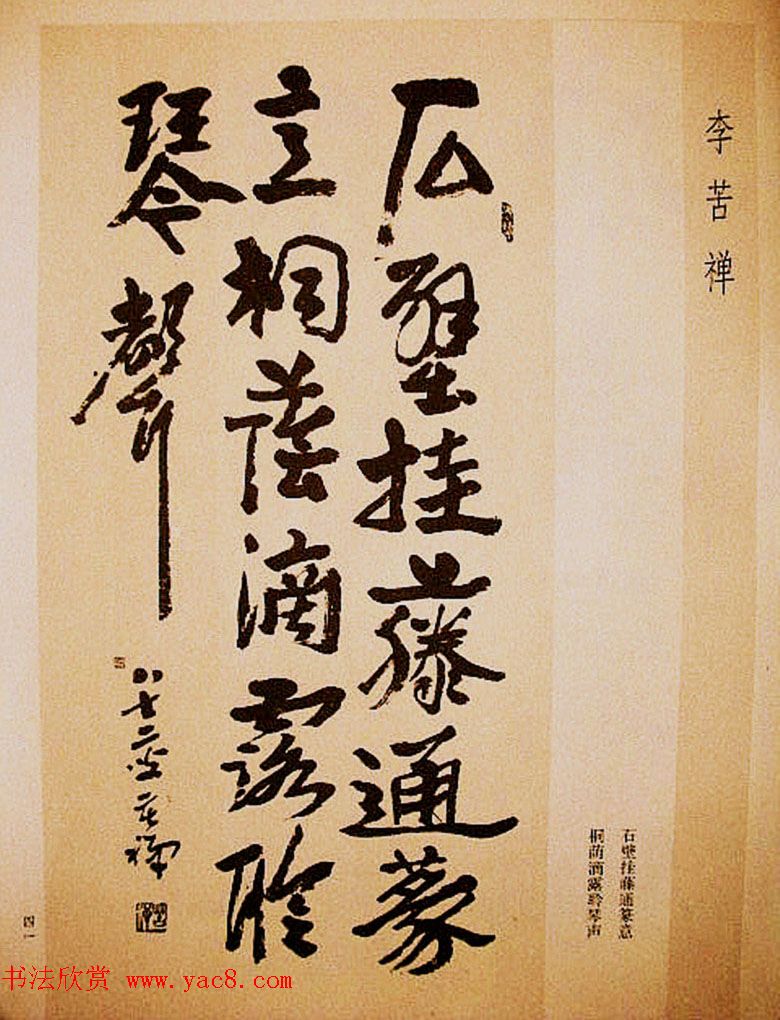 李苦禅
石壁挂藤通篆意
桐荫滴露聆琴声
石壁挂藤通篆
意桐蔭滴露聆
琴聲
苦禪
四一
书法欣赏 www.yac8.com